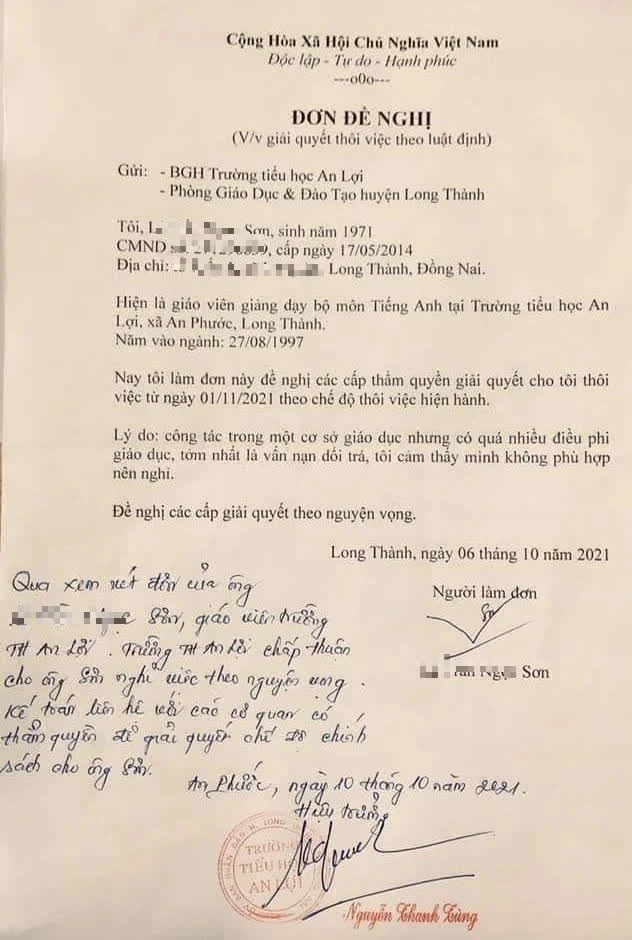 Cộng Hòa Xã Hội Chủ Nghĩa Việt Nam
Độc lập - Tự do - Hạnh phúc
---o0o---
ĐƠN ĐỀ NGHỊ
(V/v giải quyết thôi việc theo luật định)
Gửi: - BGH Trường tiểu học An Lợi
- Phòng Giáo Dục & Đào Tạo huyện Long Thành
Tôi, Sơn, sinh năm 1971
CMND cấp ngày 17/05/2014
Địa chỉ: Long Thành, Đồng Nai.
Hiện là giáo viên giảng dạy bộ môn Tiếng Anh tại Trường tiểu học An
Lợi, xã An Phước, Long Thành.
Năm vào ngành: 27/08/1997
Nay tôi làm đơn này đề nghị các cấp thẩm quyền giải quyết cho tôi thôi
việc từ ngày 01/11/2021 theo chế độ thôi việc hiện hành.
Lý do: công tác trong một cơ sở giáo dục nhưng có quá nhiều điều phi
giáo dục, tởm nhất là vấn nạn dối trá, tôi cảm thấy mình không phù hợp
nên nghỉ.
Đề nghị các cấp giải quyết theo nguyện vọng.
Long Thành, ngày 06 tháng 10 năm 2021
Người làm đơn
Sơn
Qua xem xét đơn của ông
Sơn, giáo viên trường
TH An Lợi. Trường TH An Lợi chấp thuận
cho ông Sơn nghỉ việc theo nguyện vọng.
Kế toán liên hệ với các cơ quan có
thẩm quyền để giải quyết chế độ chính
sách cho ông Sơn.
An Phước, ngày 10 tháng 10 năm 2021.
Hiệu trưởng
TRƯỜNG
TIỂU HỌC
AN LỢI
Nguyễn Thanh Tùng